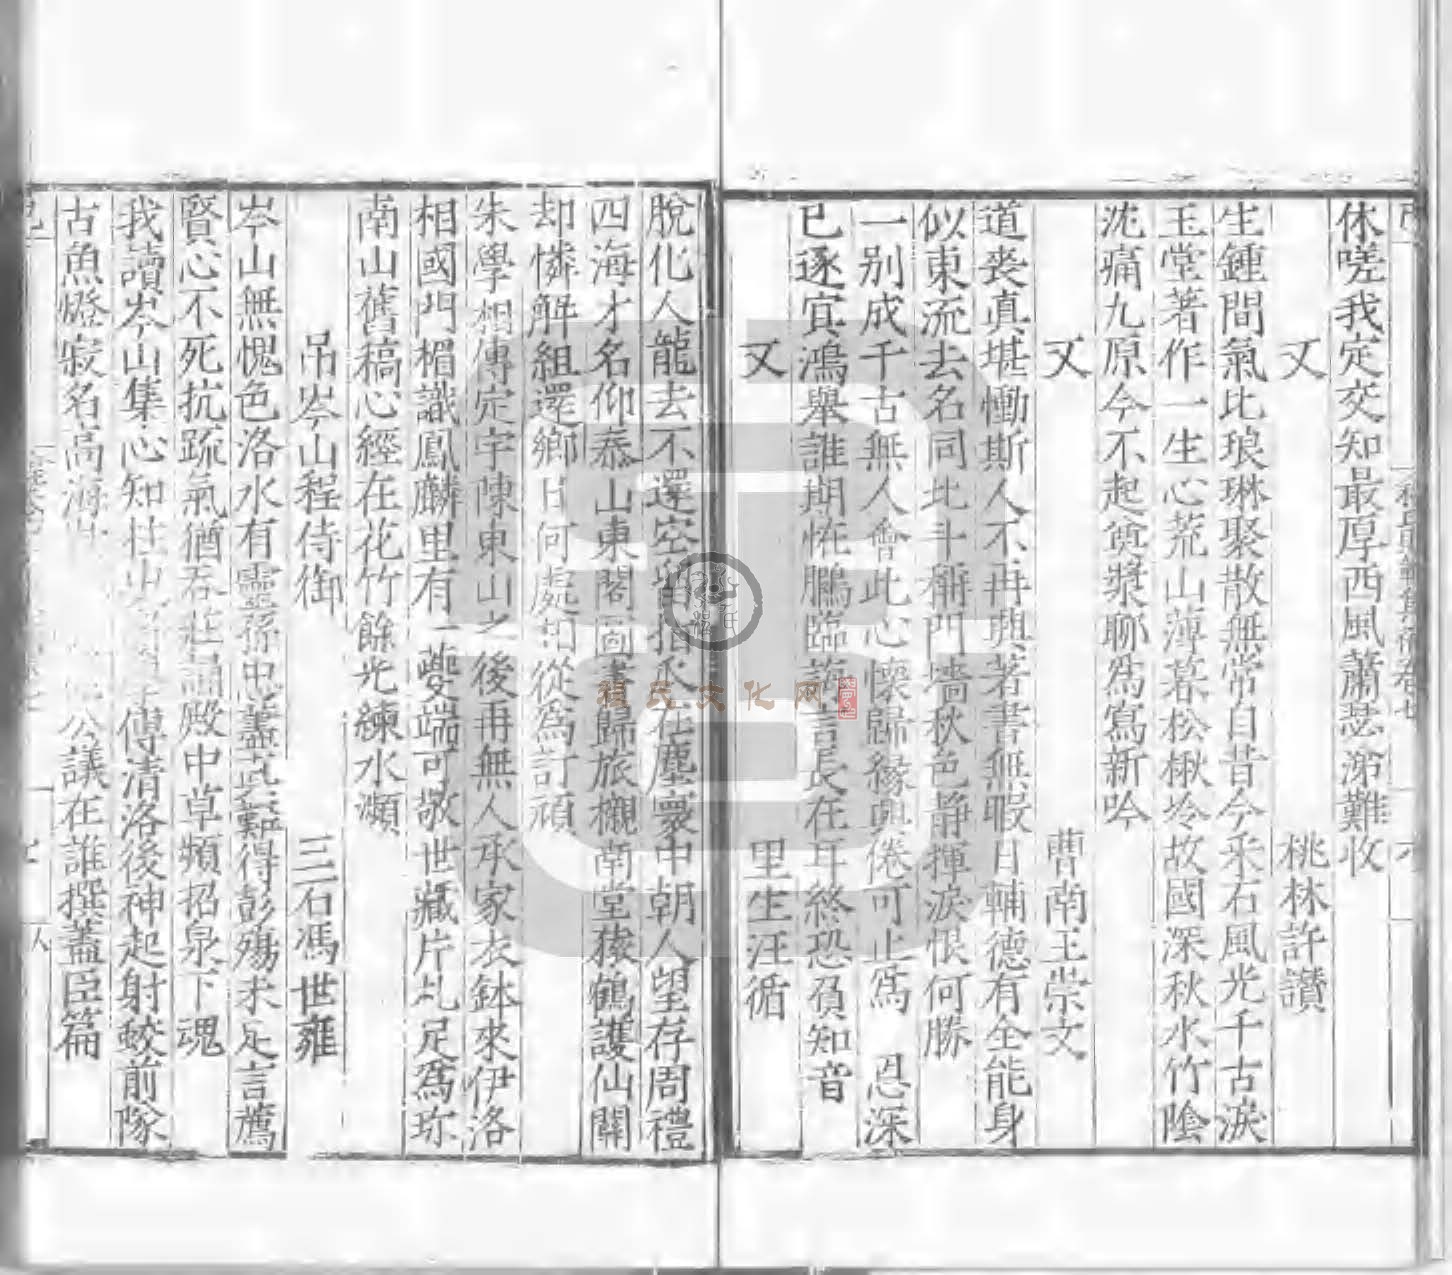 休嗟我定交知最厚西風蕭瑟涕難收
又 桃林許讃
生鍾間氣比琅琳聚散無常自昔今采石風光千古淚
玉堂著作一生心荒山薄暮松楸冷故國深秋水竹陰
沈痛九原今不起奠漿聊為寫新吟
又 曹南王崇文
道喪真堪慟斯人不再興著書無暇日輔德有全能身
似東流去名同北斗稱門墻秋色静揮淚恨何勝
一别成千古無人會此心懷歸緣興倦可止爲 恩深
已逐宾鴻舉誰期恠鵬臨 言長在耳終恐負知音
又 里生汪循
脫化人龍去不還空留 在塵寰中朝人望存周禮
四海才名仰泰山東閣 畫歸旅櫬南堂猿鶴護仙關
却憐解組還鄉日何處 從為訂頑
朱學相傳定宇陳東山之後再無人承家衣鉢來伊洛
相國門楣識鳳麟里有一夔端可敬世藏片札足爲珎
南山舊稿心經在花竹餘光練水瀕
吊岑山程侍御 三石馮世雍
岑山無愧色洛水有靈孫忠藎 難得彭殤未足言薦
賢心不死抗疏氣猶吞 誦殿中草頻招泉下魂
我讀岑山集心知柱史 傳清洛後神起射鮫前隊
古魚燈寂名高海 公議在誰撰藎臣篇
程氏文化网